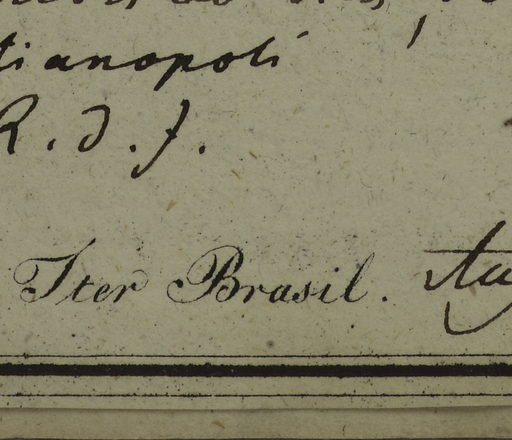 tianopoli
R. d. J.
Iter Brasil.